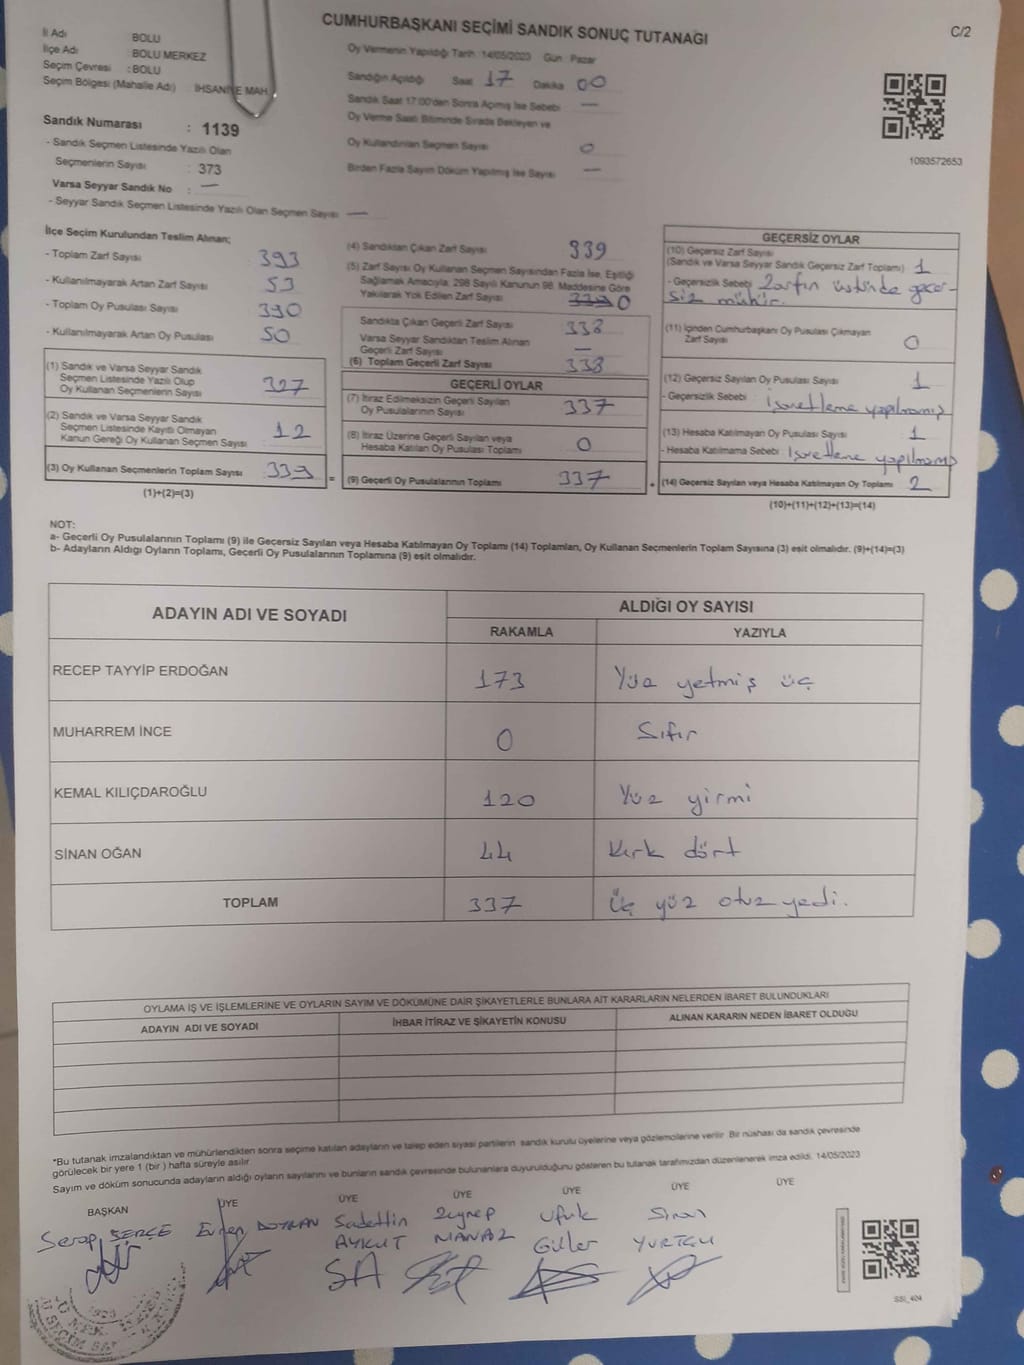 CUMHURBAŞKANI SEÇİMİ SANDIK SONUÇ TUTANAĞI
C/2
İl Adı BOLU
İlçe Adı BOLU MERKEZ
Seçim Çevresi : BOLU
Seçim Bölgesi (Mahalle Adı) İHSANİYE MAH
Sandık Numarası : 1139
- Sandık Seçmen Listesinde Yazılı Olan
Seçmenlerin Sayısı : 373
Varsa Seyyar Sandık No : —
- Seyyar Sandık Seçmen Listesinde Yazılı Olan Seçmen Sayısı —
Oy Vermenin Yapıldığı Tarih :14/05/2023 Gün : Pazar
Sandığın Açıldığı Saat 17 Dakika 00
Sandık Saat 17:00'den Sonra Açılmış İse Sebebi —
Oy Verme Saati Bitiminde Sırada Bekleyen ve
Oy Kullandırılan Seçmen Sayısı 0
Birden Fazla Sayım Döküm Yapılmış İse Sayısı —
1093572653
İlçe Seçim Kurulundan Teslim Alınan;
- Toplam Zarf Sayısı 393
- Kullanılmayarak Artan Zarf Sayısı 53
- Toplam Oy Pusulası Sayısı 390
- Kullanılmayarak Artan Oy Pusulası 50
(1) Sandık ve Varsa Seyyar Sandık
Seçmen Listesinde Yazılı Olup
Oy Kullanan Seçmenlerin Sayısı 327
(2) Sandık ve Varsa Seyyar Sandık
Seçmen Listesinde Kayıtlı Olmayan
Kanun Gereği Oy Kullanan Seçmen Sayısı 12
(3) Oy Kullanan Seçmenlerin Toplam Sayısı 339 =
(1)+(2)=(3)
(4) Sandıktan Çıkan Zarf Sayısı 339
(5) Zarf Sayısı Oy Kullanan Seçmen Sayısından Fazla İse, Eşitliği
Sağlamak Amacıyla; 298 Sayılı Kanunun 98. Maddesine Göre
Yakılarak Yok Edilen Zarf Sayısı 0
Sandıkta Çıkan Geçerli Zarf Sayısı 338
Varsa Seyyar Sandıktan Teslim Alınan
Geçerli Zarf Sayısı —
(6) Toplam Geçerli Zarf Sayısı 338
GEÇERLİ OYLAR
(7) İtiraz Edilmeksizin Geçerli Sayılan
Oy Pusulalarının Sayısı 337
(8) İtiraz Üzerine Geçerli Sayılan veya
Hesaba Katılan Oy Pusulası Toplamı 0
(9) Geçerli Oy Pusulalarının Toplamı 337 +
GEÇERSİZ OYLAR
(10) Geçersiz Zarf Sayısı
(Sandık ve Varsa Seyyar Sandık Geçersiz Zarf Toplamı) 1
- Geçersizlik Sebebi Zarfın üstünde geçer-
siz mühür.
(11) İçinden Cumhurbaşkanı Oy Pusulası Çıkmayan
Zarf Sayısı 0
(12) Geçersiz Sayılan Oy Pusulası Sayısı 1
- Geçersizlik Sebebi İşaretleme yapılmamış
(13) Hesaba Katılmayan Oy Pusulası Sayısı 1
- Hesaba Katılmama Sebebi İşaretleme yapılmamış
(14) Geçersiz Sayılan veya Hesaba Katılmayan Oy Toplamı 2
(10)+(11)+(12)+(13)=(14)
NOT:
a- Geçerli Oy Pusulalarının Toplamı (9) ile Geçersiz Sayılan veya Hesaba Katılmayan Oy Toplamı (14) Toplamları, Oy Kullanan Seçmenlerin Toplam Sayısına (3) eşit olmalıdır. (9)+(14)=(3)
b- Adayların Aldığı Oyların Toplamı, Geçerli Oy Pusulalarının Toplamına (9) eşit olmalıdır.
ADAYIN ADI VE SOYADI ALDIĞI OY SAYISI
RAKAMLA YAZIYLA
RECEP TAYYİP ERDOĞAN 173 Yüz yetmiş üç
MUHARREM İNCE 0 Sıfır
KEMAL KILIÇDAROĞLU 120 Yüz yirmi
SİNAN OĞAN 44 Kırk dört
TOPLAM 337 Üç yüz otuz yedi.
OYLAMA İŞ VE İŞLEMLERİNE VE OYLARIN SAYIM VE DÖKÜMÜNE DAİR ŞİKAYETLERLE BUNLARA AİT KARARLARIN NELERDEN İBARET BULUNDUKLARI
ADAYIN ADI VE SOYADI İHBAR İTİRAZ VE ŞİKAYETİN KONUSU ALINAN KARARIN NEDEN İBARET OLDUĞU
*Bu tutanak imzalandıktan ve mühürlendikten sonra seçime katılan adayların ve talep eden siyasi partilerin sandık kurulu üyelerine veya gözlemcilerine verilir. Bir nüshası da sandık çevresinde
görülecek bir yere 1 (bir) hafta süreyle asılır.
Sayım ve döküm sonucunda adayların aldığı oyların sayılarını ve bunların sandık çevresinde bulunanlara duyurulduğunu gösteren bu tutanak tarafımızdan düzenlenerek imza edildi. 14/05/2023
BAŞKAN ÜYE ÜYE ÜYE ÜYE ÜYE ÜYE
Serap SERÇE Evren Sadettin Zeynep Ufuk Sinan
AYKUT MANAZ Güller YURTÇU
SA